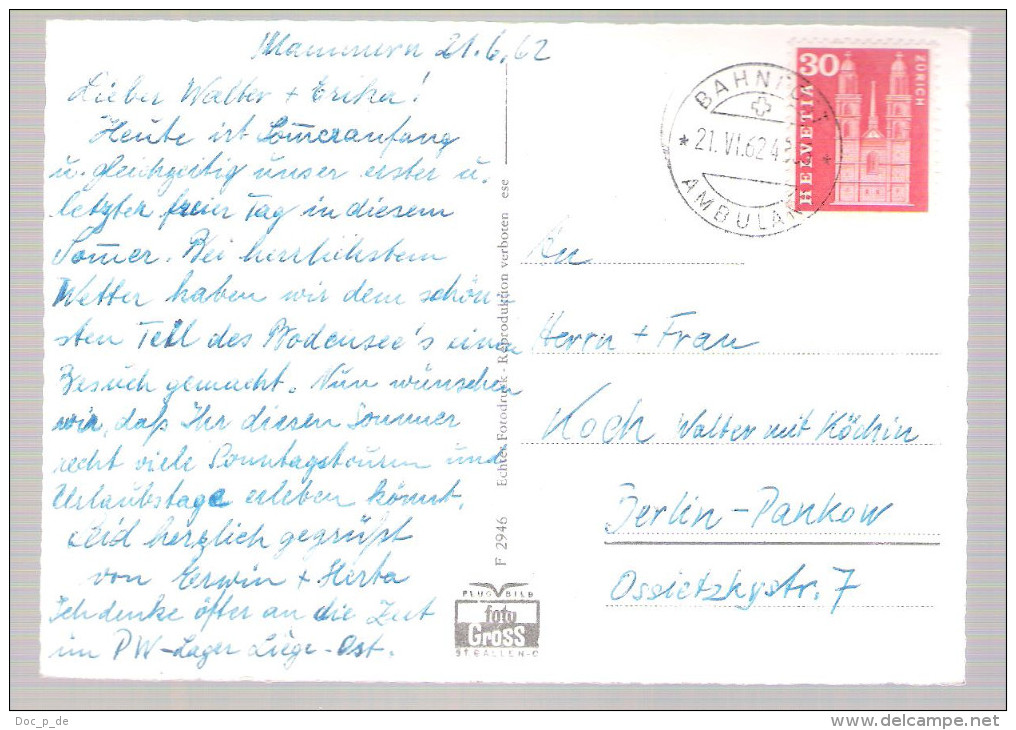 Mammern 21.6.62
Lieber Walter + Erika!
Heute ist Som̄eranfang
u. gleichzeitig unser erster u.
letzter freier Tag in diesem
Som̄er. Bei herrlichstem
Wetter haben wir dem schön-
sten Teil des Bodensee's einen
Besuch gemacht. Nun wünschen
wir, daß Ihr diesen Sommer
recht viele Sonntagstouren und
Urlaubstage erleben könnt.
Seid herzlich gegrüßt
von Erwin + Herta
Ich denke öfter an die Zeit
im PW-Lager Liège-Ost.
F 2946 Echter Fotodruck - Reproduktion verboten ese
FLUG BILD
foto
Gross
ST GALLEN-C
30
HELVETIA
ZÜRICH
BAHNPOST
* 21.VI.62 *
AMBULANT
An
Herrn + Frau
Koch Walter mit Köchin
Berlin-Pankow
Ossietzkystr. 7
Doc_p_de
www.delcampe.net